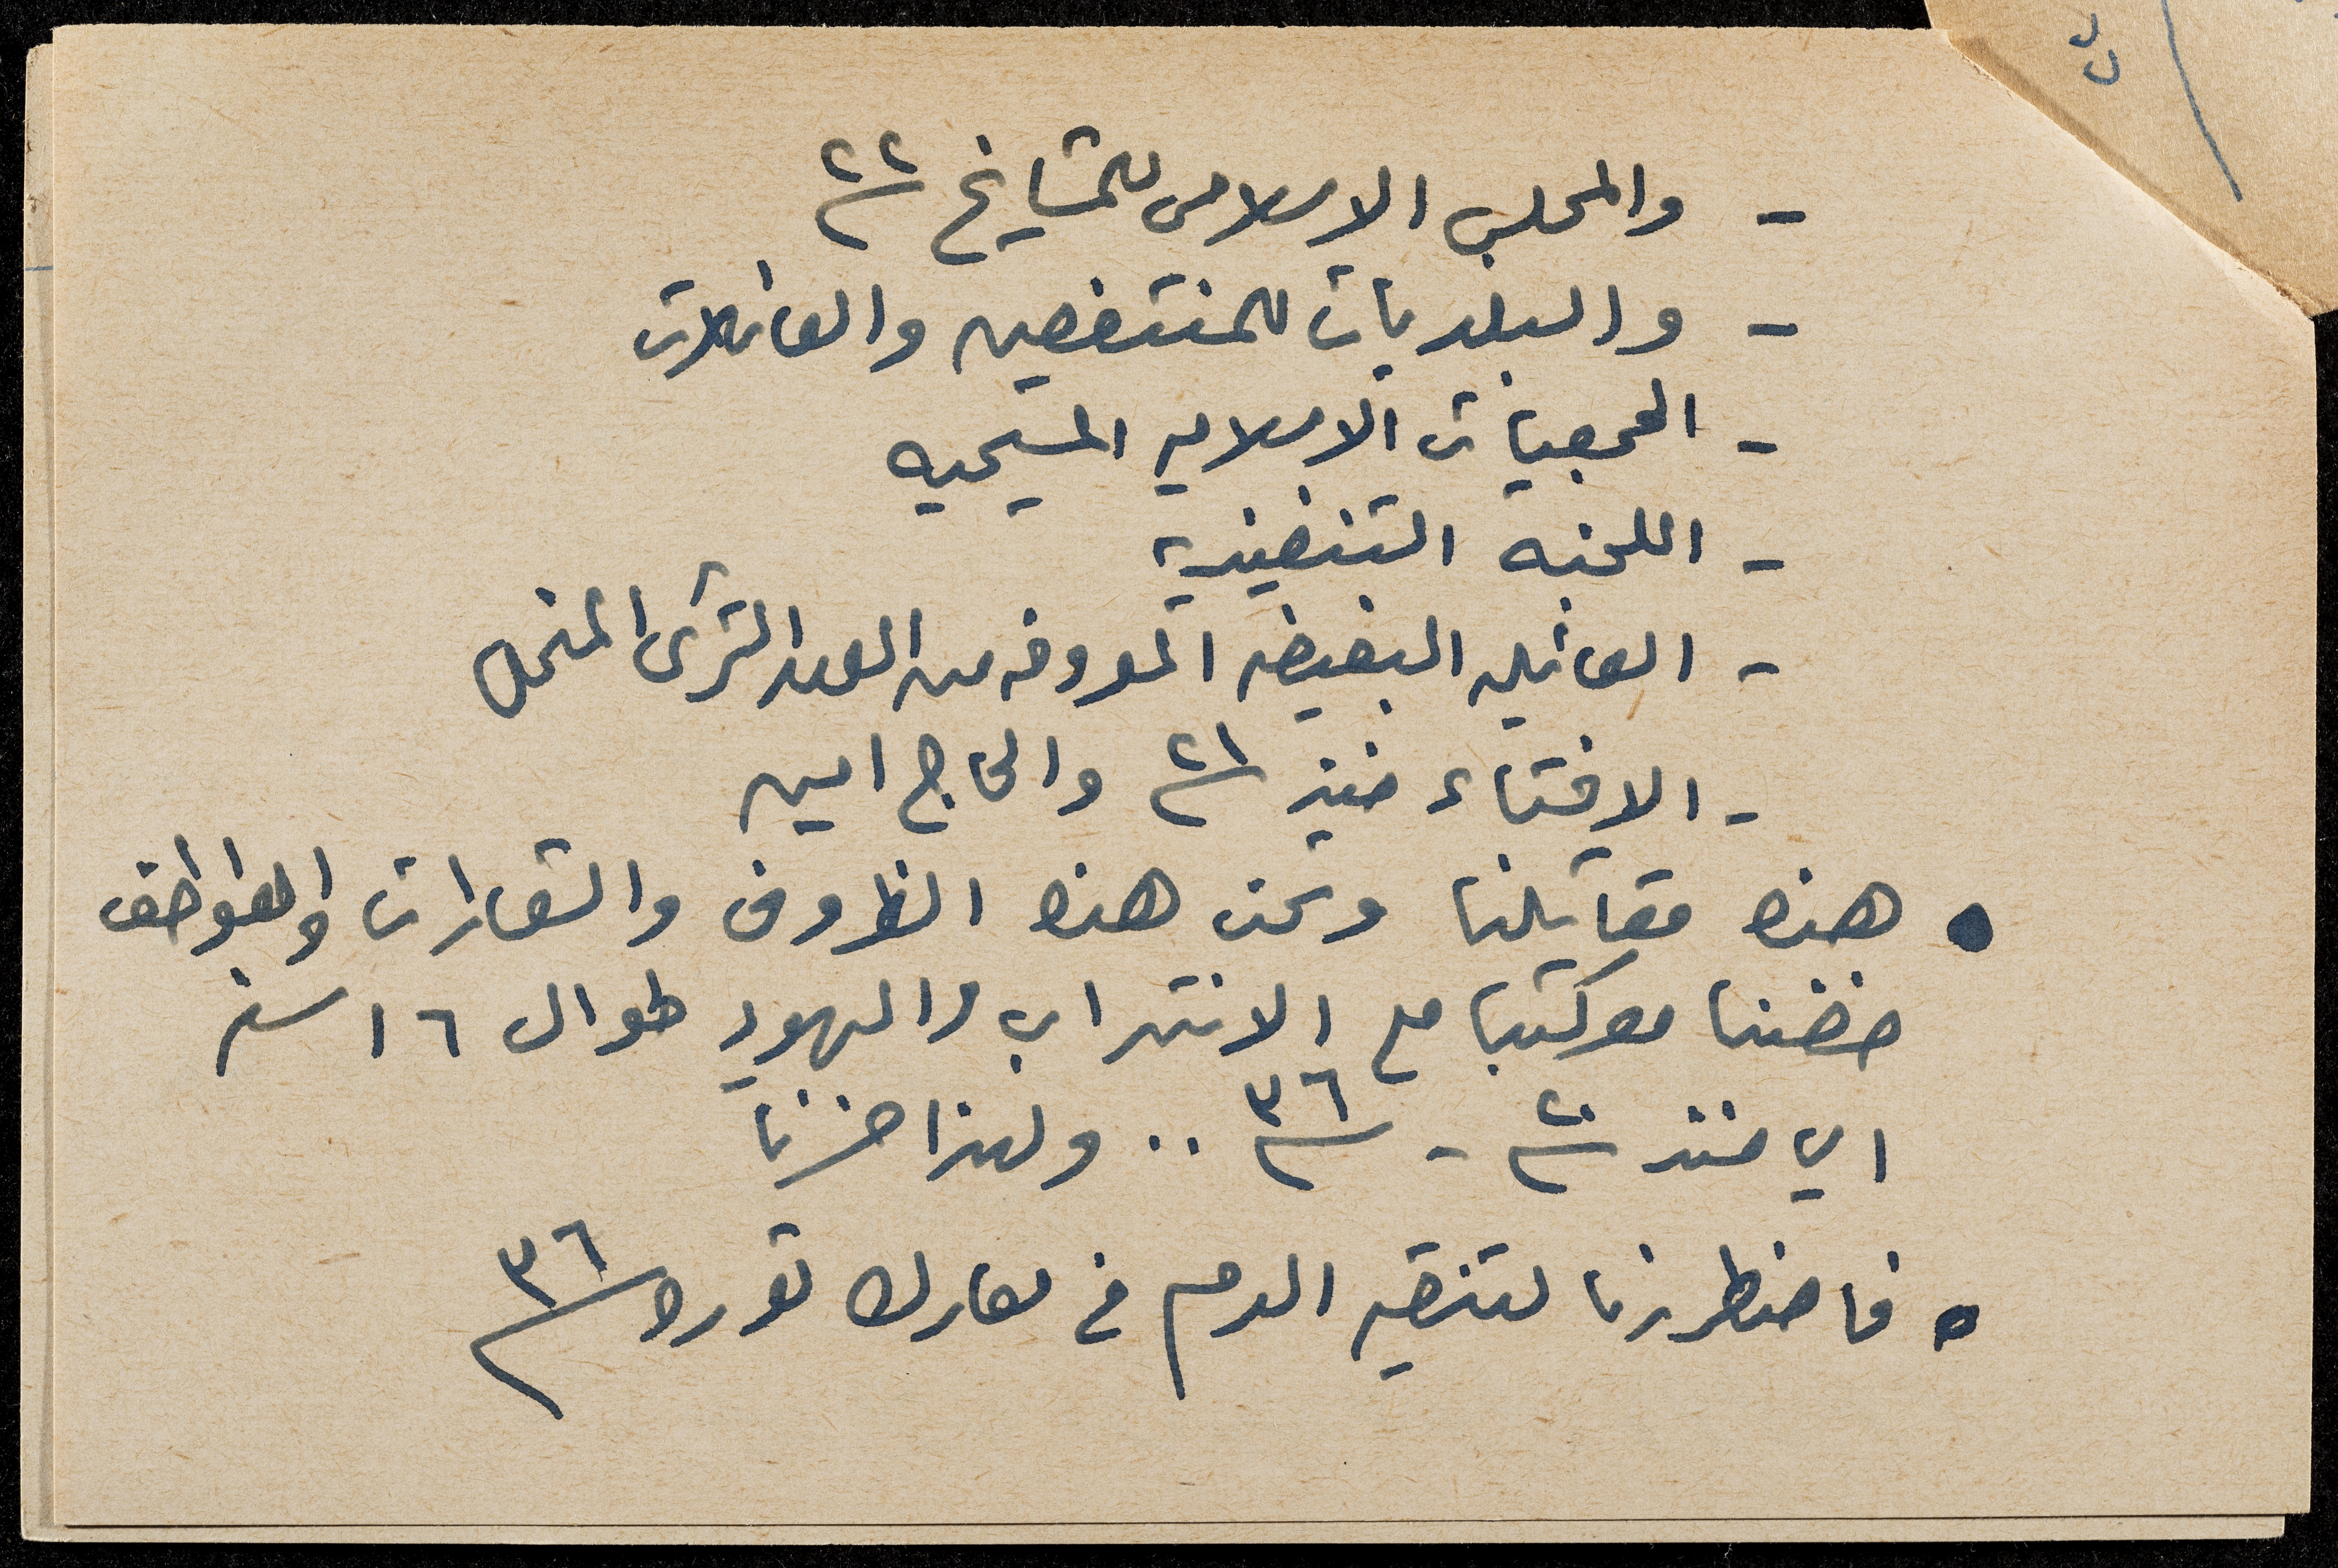 - والمجلس الاسلامى للمشايخ ٢٢
- والبلديات للمنتفعين والعائلات
- الجمعيات الاسلاميه المسيحيه
- اللجنه التنفيذية
- العائليه البغيضه الموروثه من العهد التركى المنحل
- الافتاء منذ ٢١ والحاج امين
• هذه مقاتلنا وتحت هذه الظروف والشعارات والعواطف
خضنا معركتنا مع الانتداب واليهود طوال ١٦ سنه
اي منذ ٢٠ - ٣٦ .. ولهذا خسرنا
• فاضطررنا لتنقيه الدم في معارك ثوره ٣٦